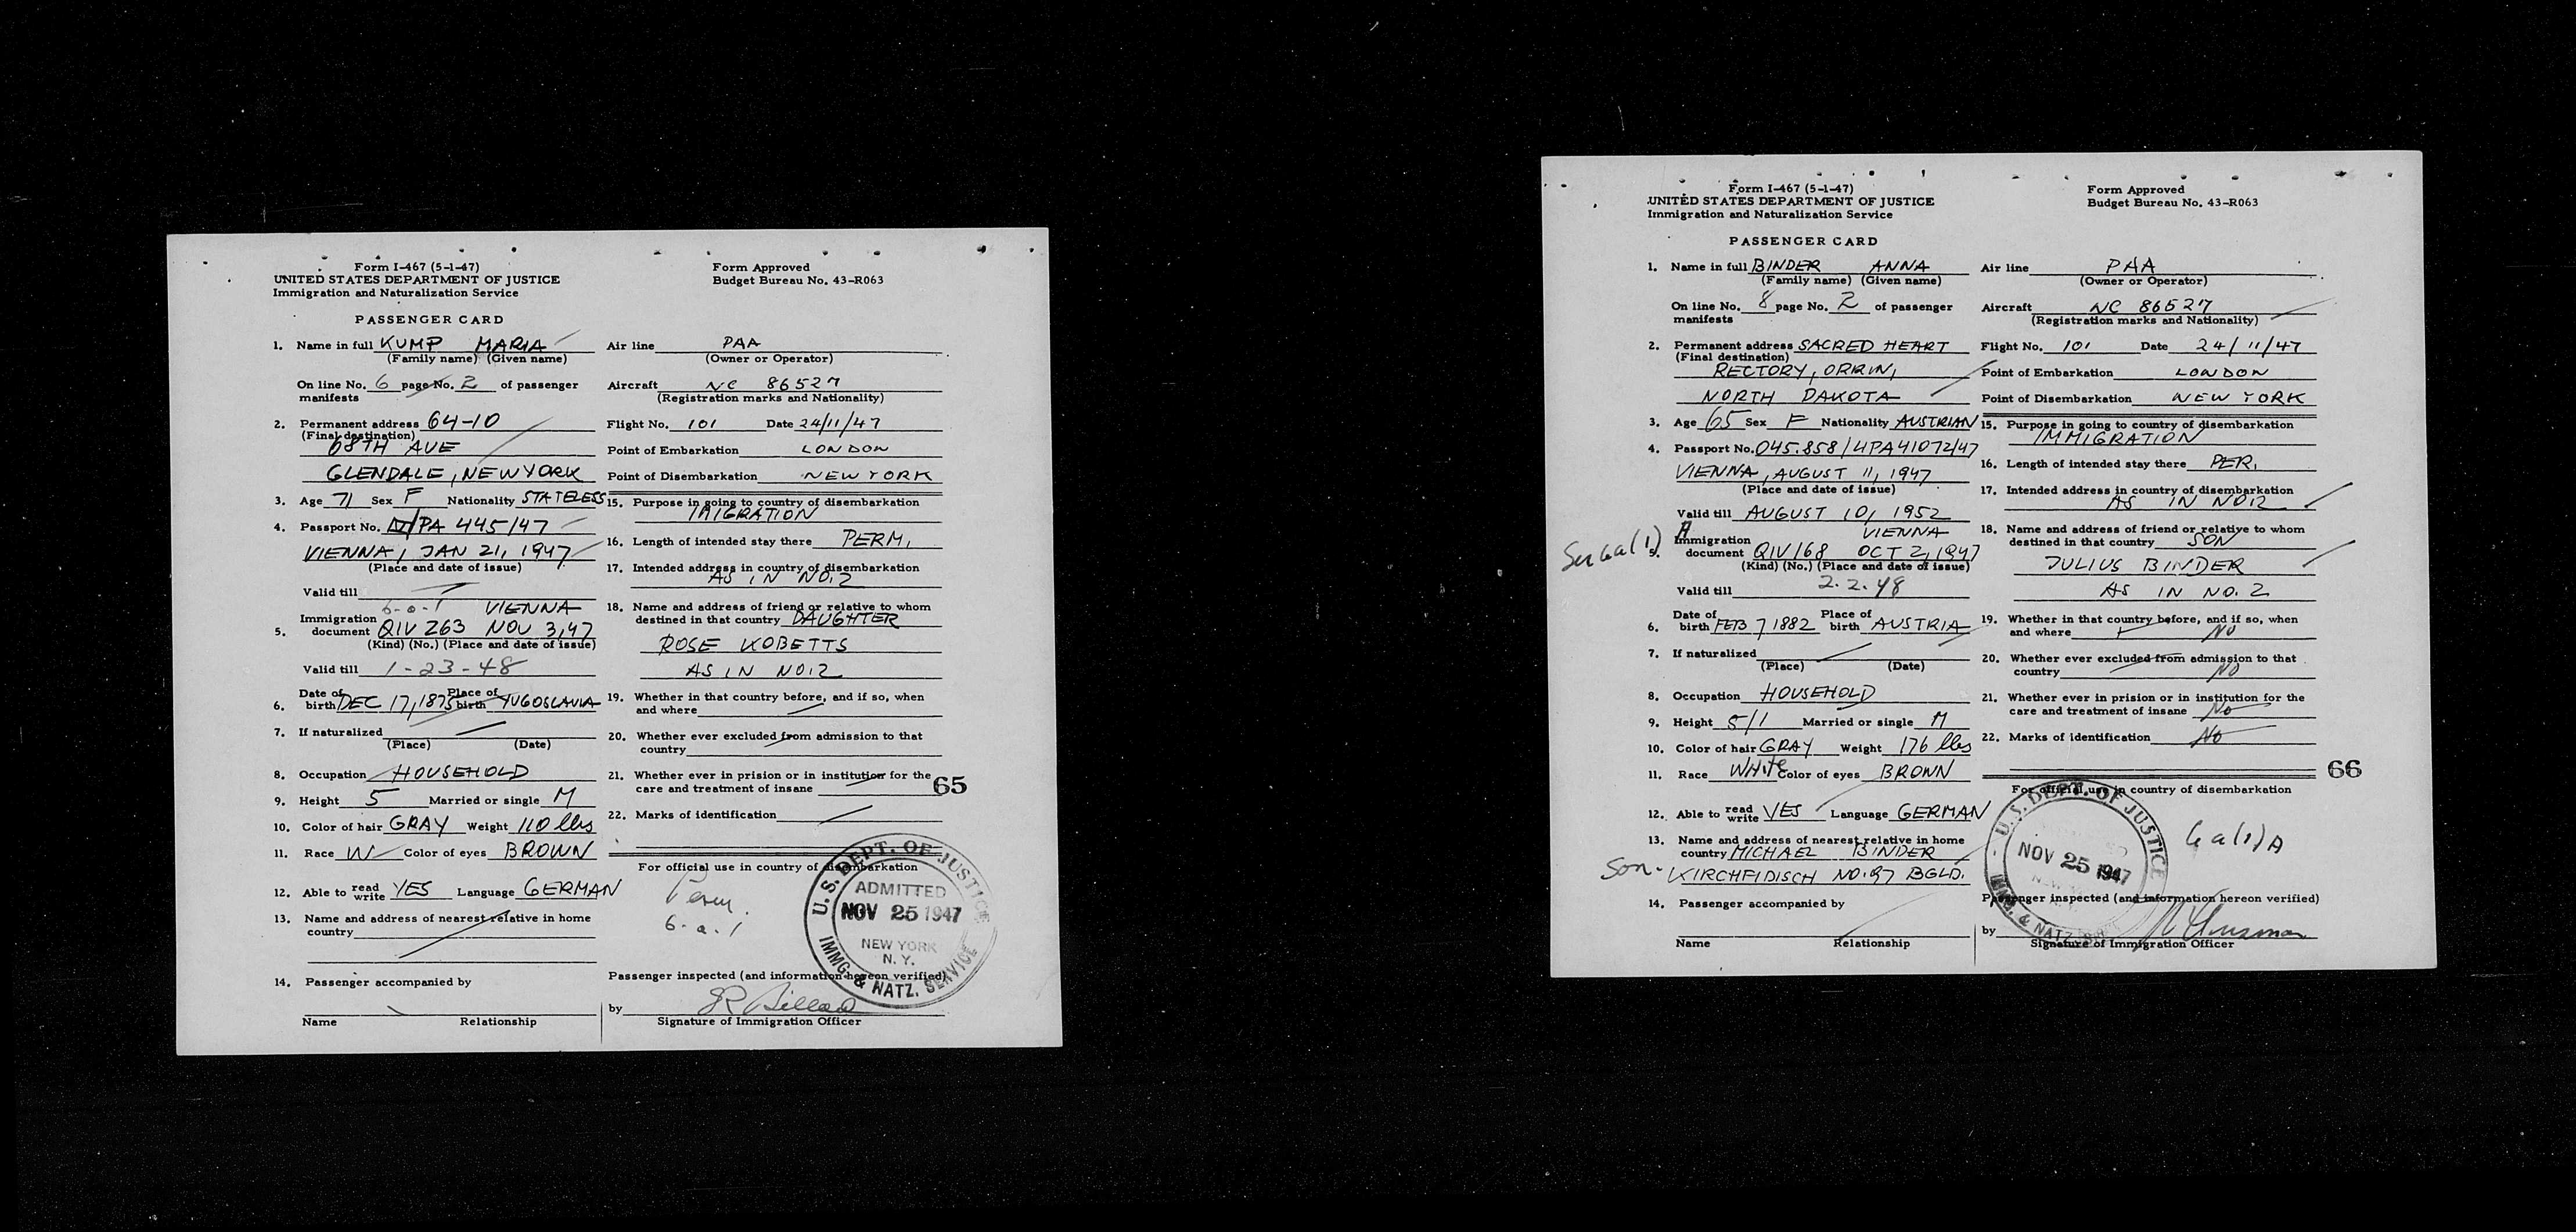 Form I-467 (5-1-47)
UNITED STATES DEPARTMENT OF JUSTICE
Immigration and Naturalization Service
Form Approved
Budget Bureau No. 43-R063
PASSENGER CARD
1. Name in full KUMP MARIA
(Family name) (Given name)
On line No. 6 page No. 2 of passenger
manifests
2. Permanent address 64-10
(Final destination)
68TH AVE
GLENDALE, NEW YORK
3. Age 71 Sex F Nationality STATELESS
4. Passport No. IV/PA 445/47
VIENNA, JAN 21, 1947
(Place and date of issue)
Valid till
6-a-1 VIENNA
Immigration
5. document QIV 263 NOV 3, 47
(Kind) (No.) (Place and date of issue)
Valid till 1-23-48
Date of Place of
6. birth DEC 17, 1875 birth YUGOSLAVIA
7. If naturalized
(Place) (Date)
8. Occupation HOUSEHOLD
9. Height 5 Married or single M
10. Color of hair GRAY Weight 110 lbs
11. Race W Color of eyes BROWN
12. Able to read write YES Language GERMAN
13. Name and address of nearest relative in home
country
14. Passenger accompanied by
Name Relationship
Air line PAA
(Owner or Operator)
Aircraft NC 86527
(Registration marks and Nationality)
Flight No. 101 Date 24/11/47
Point of Embarkation LONDON
Point of Disembarkation NEW YORK
15. Purpose in going to country of disembarkation
IMIGRATION
16. Length of intended stay there PERM.
17. Intended address in country of disembarkation
AS IN NO. 2
18. Name and address of friend or relative to whom
destined in that country DAUGHTER
ROSE KOBETTS
AS IN NO. 2
19. Whether in that country before, and if so, when
and where
20. Whether ever excluded from admission to that
country
21. Whether ever in prision or in institution for the
care and treatment of insane
65
22. Marks of identification
For official use in country of disembarkation
Perm.
6-a-1
U.S. DEPT. OF JUSTICE
ADMITTED
NOV 25 1947
NEW YORK
N. Y.
IMMG. & NATZ. SERVICE
Passenger inspected (and information hereon verified)
by
Signature of Immigration Officer
Form I-467 (5-1-47)
UNITED STATES DEPARTMENT OF JUSTICE
Immigration and Naturalization Service
Form Approved
Budget Bureau No. 43-R063
PASSENGER CARD
1. Name in full BINDER ANNA
(Family name) (Given name)
On line No. 8 page No. 2 of passenger
manifests
2. Permanent address SACRED HEART
(Final destination)
RECTORY, ORRIN,
NORTH DAKOTA
3. Age 65 Sex F Nationality AUSTRIAN
4. Passport No. 045.858/4PA41072/47
VIENNA, AUGUST 11, 1947
(Place and date of issue)
Valid till AUGUST 10, 1952
6a(1) A
Immigration VIENNA
5. document QIV168 OCT 2, 1947
(Kind) (No.) (Place and date of issue)
Valid till 2.2.48
Date of Place of
6. birth FEB 7 1882 birth AUSTRIA
7. If naturalized
(Place) (Date)
8. Occupation HOUSEHOLD
9. Height 5/1 Married or single M
10. Color of hair GRAY Weight 176 lbs
11. Race White Color of eyes BROWN
12. Able to read write YES Language GERMAN
13. Name and address of nearest relative in home
country MICHAEL BINDER
Son. KIRCHFIDISCH NO. 97 BGLD.
14. Passenger accompanied by
Name Relationship
Air line PAA
(Owner or Operator)
Aircraft NC 86527
(Registration marks and Nationality)
Flight No. 101 Date 24/11/47
Point of Embarkation LONDON
Point of Disembarkation NEW YORK
15. Purpose in going to country of disembarkation
IMMIGRATION
16. Length of intended stay there PER.
17. Intended address in country of disembarkation
AS IN NO. 2
18. Name and address of friend or relative to whom
destined in that country SON
JULIUS BINDER
AS IN NO. 2
19. Whether in that country before, and if so, when
and where NO
20. Whether ever excluded from admission to that
country NO
21. Whether ever in prision or in institution for the
care and treatment of insane No
22. Marks of identification No
66
For official use in country of disembarkation
6a(1)A
U.S. DEPT. OF JUSTICE
NOV 25 1947
IMMG. & NATZ.
Passenger inspected (and information hereon verified)
by
Signature of Immigration Officer